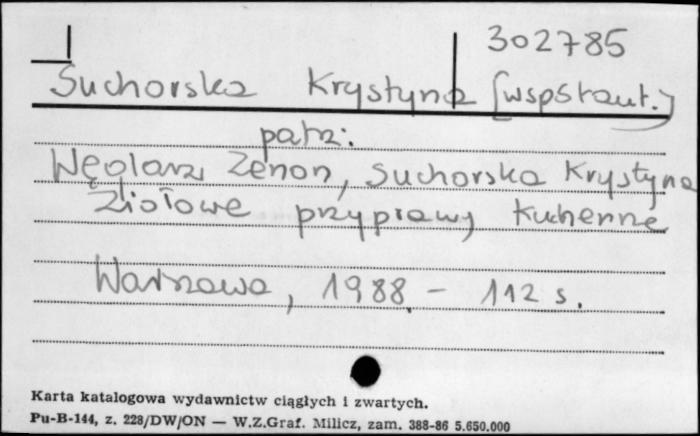 302785
Suchorska Krystyna [współaut.]
patrz:
Węglarz Zenon, Suchorska Krystyna
Ziołowe przyprawy kuchenne
Warszawa, 1988. – 112 s.
Karta katalogowa wydawnictw ciągłych i zwartych.
Pu-B-144, z. 228/DW/ON — W.Z.Graf. Milicz, zam. 388-86 5.650.000